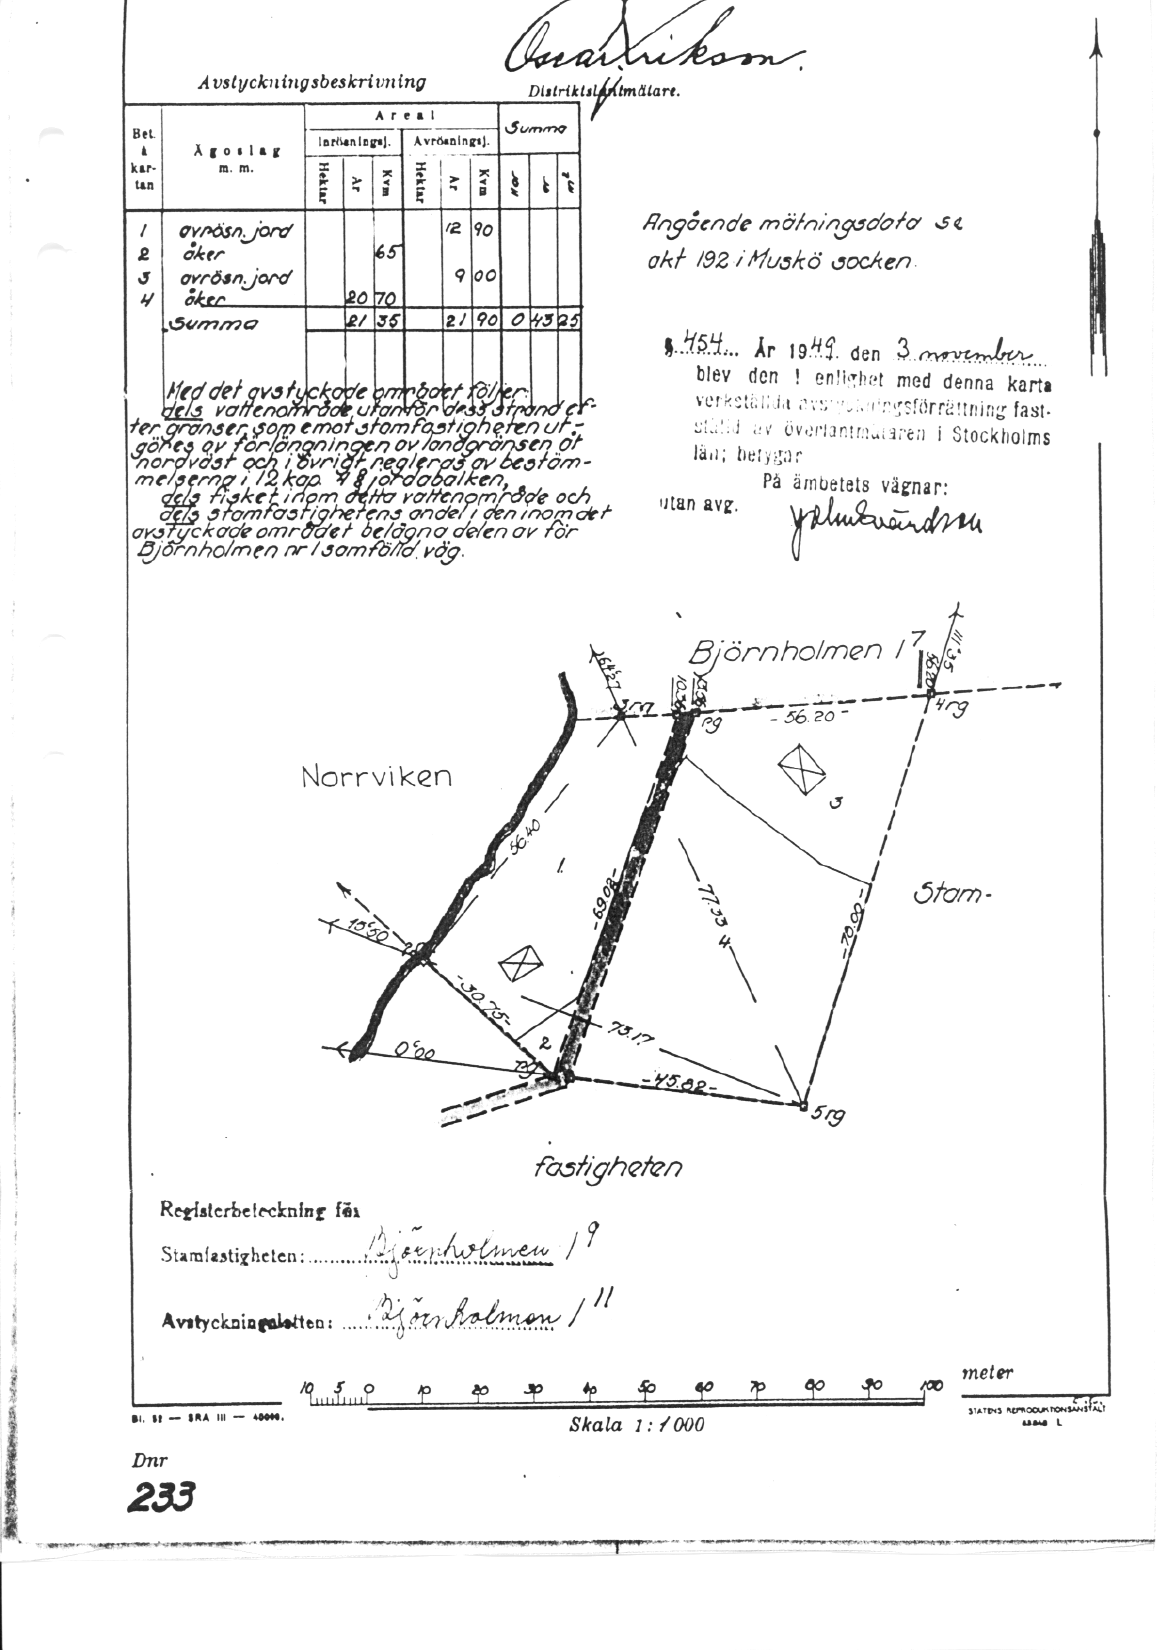 Oscar Erikson.
Distriktslantmätare.
Avstyckningsbeskrivning
Bet. å kartan
Ägoslag m. m.
Areal
Inrösningsj.
Avrösningsj.
Summa
Hektar Ar Kvm Hektar Ar Kvm har ar
1 avrösn. jord 12 90
2 åker 65
3 avrösn. jord 9 00
4 åker 20 70
Summa 21 35 21 90 0 43 25
Med det avstyckade området följer:
dels vattenområde utanför dess strand ef-
ter gränser, som emot stamfastigheten ut-
göres av förlängningen av landgränsen åt
nordväst och i övrigt regleras av bestäm-
melserna i 12 kap. 4 § jordabalken,
dels fisket inom detta vattenområde och
dels stamfastighetens andel i den inom det
avstyckade området belägna delen av för
Björnholmen nr 1 samfälld väg.
Angående mätningsdata se
akt 192 i Muskö socken.
§ 454 År 1949 den 3 november
blev den i enlighet med denna karta
verkställda avstyckningsförrättning fast-
ställd av överlantmätaren i Stockholms
län; betygar
På ämbetets vägnar:
utan avg.
Björnholmen 1⁷
64.27
rn
10.36
rg
- 56.20 -
56.20
111.35
4rg
Norrviken
3
56.40
1.
Stam-
-69.08-
77.33
4
-70.00-
15.50
-30.75-
73.17
2
0.00
rg
-45.82-
5rg
fastigheten
Registerbeteckning för
Stamfastigheten: Björnholmen 1⁹
Avstyckningslotten: Björnholmen 1¹¹
10 5 0 10 20 30 40 50 60 70 80 90 100 meter
Skala 1:1000
Bl. 52 — SRA III — 40000.
STATENS REPRODUKTIONSANSTALT
Dnr
233